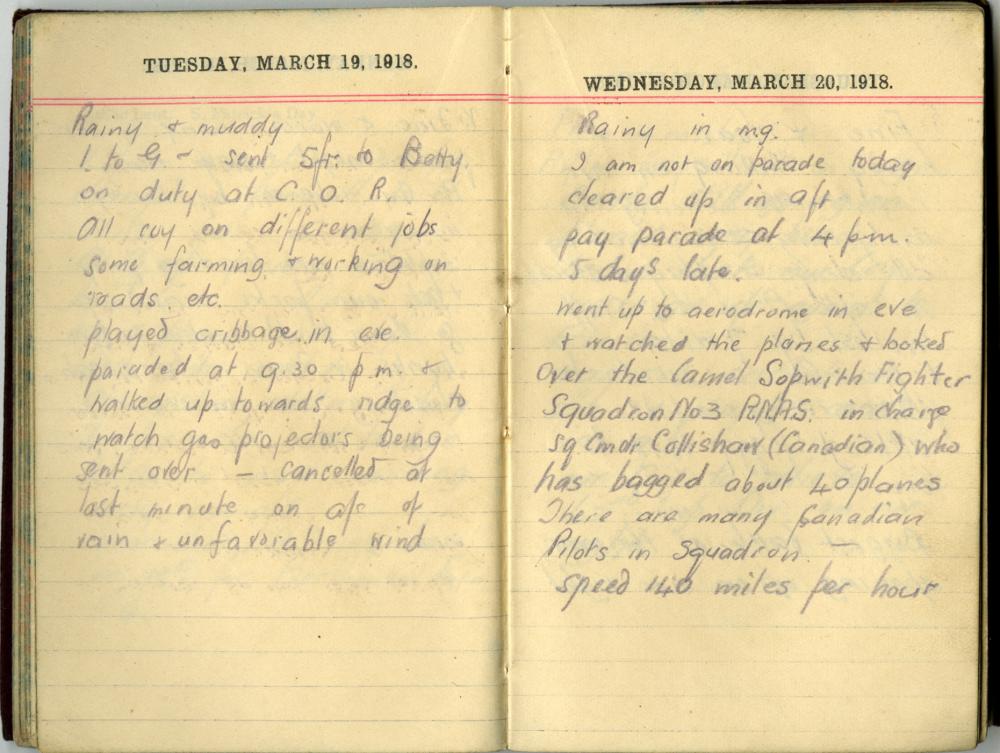 TUESDAY, MARCH 19, 1918.
Rainy & muddy
1. to G. – sent 5fr. to Betty.
on duty at C. O. R.
All coy on different jobs
some farming & working on
roads etc.
played cribbage in eve.
paraded at 9.30 p.m. &
walked up towards ridge to
watch gas projectors being
sent over – cancelled at
last minute on a/c of
rain & unfavorable wind
WEDNESDAY, MARCH 20, 1918.
Rainy in mg.
I am not on parade today
cleared up in aft
pay parade at 4 p.m.
5 days late.
went up to aerodrome in eve
& watched the planes & looked
over the Camel Sopwith Fighter
Squadron No3 R.N.A.S. in charge
sq Cmdr Collishaw (Canadian) who
has bagged about 40 planes
There are many Canadian
Pilots in Squadron —
speed 140 miles per hour